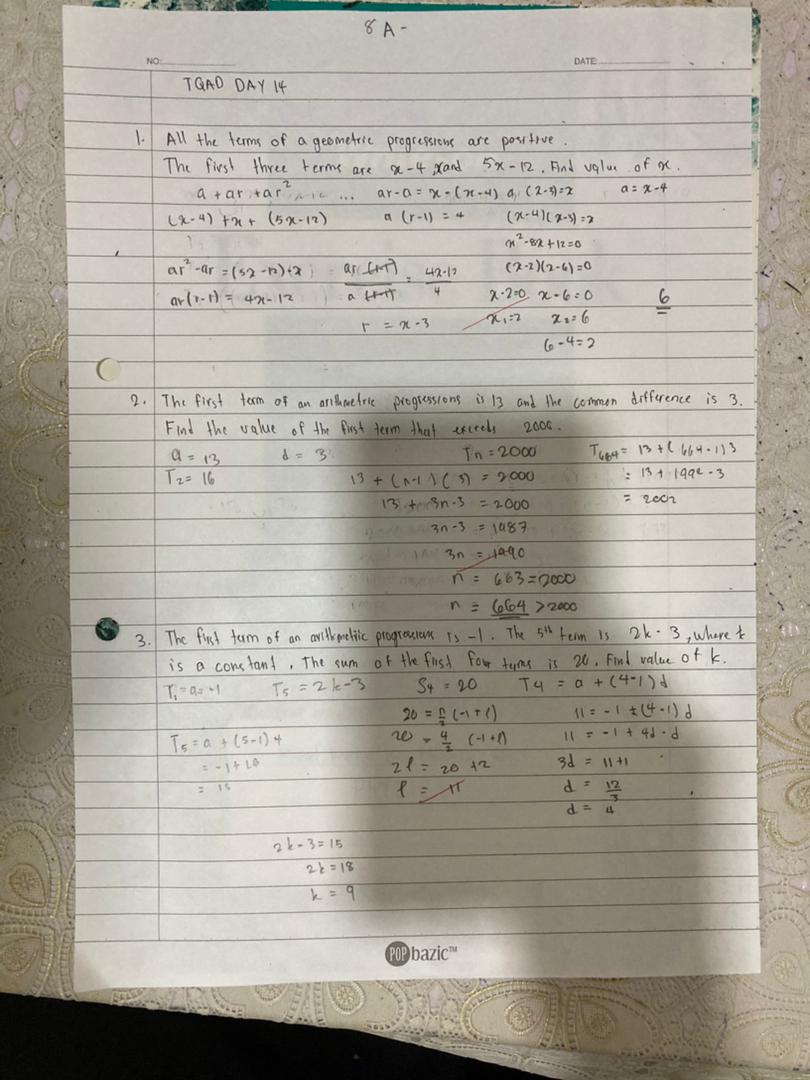 8 A -
NO:
DATE:
TQAD DAY 14
1. All the terms of a geometric progressions are positive.
The first three terms are x-4 xand 5x-12. Find value of x.
a + ar + ar² ... ar-a = x-(x-4) a = x-4
(x-4) + x + (5x-12) a (r-1) = 4 (x-4)(x-3)=x
x²-8x+12=0
ar²-ar = (5x-12)+x ar (r-1) / a (r-1) = 4x-12 / 4 (x-2)(x-6)=0
ar(r-1) = 4x-12 x-2=0 x-6=0 6
r = x-3 x₁=2 x₂=6
6-4=2
2. The first term of an arithmetric progressions is 13 and the common difference is 3.
Find the value of the first term that exceeds 2000.
a = 13 d = 3 Tn = 2000 T₆₆₄ = 13 + (664-1)3
T₂ = 16 13 + (n-1)(3) = 2000 = 13 + 1992 - 3
13 + 3n-3 = 2000 = 2002
3n-3 = 1987
3n = 1990
n = 663 = 2000
n = 664 > 2000
3. The first term of an arithmetic progressions is -1. The 5th term is 2k-3, where k
is a constant. The sum of the first four terms is 20. Find value of k.
T₁ = a = -1 T₅ = 2k-3 S₄ = 20 T4 = a + (4-1)d
20 = n/2 (-1+l) 11 = -1 + (4-1)d
T₅ = a + (5-1)4 20 = 4/2 (-1+l) 11 = -1 + 4d - d
= -1+16 2l = 20 +2 3d = 11+1
= 15 l = 11 d = 12/3
d = 4
2k-3=15
2k=18
k = 9
POP bazic™